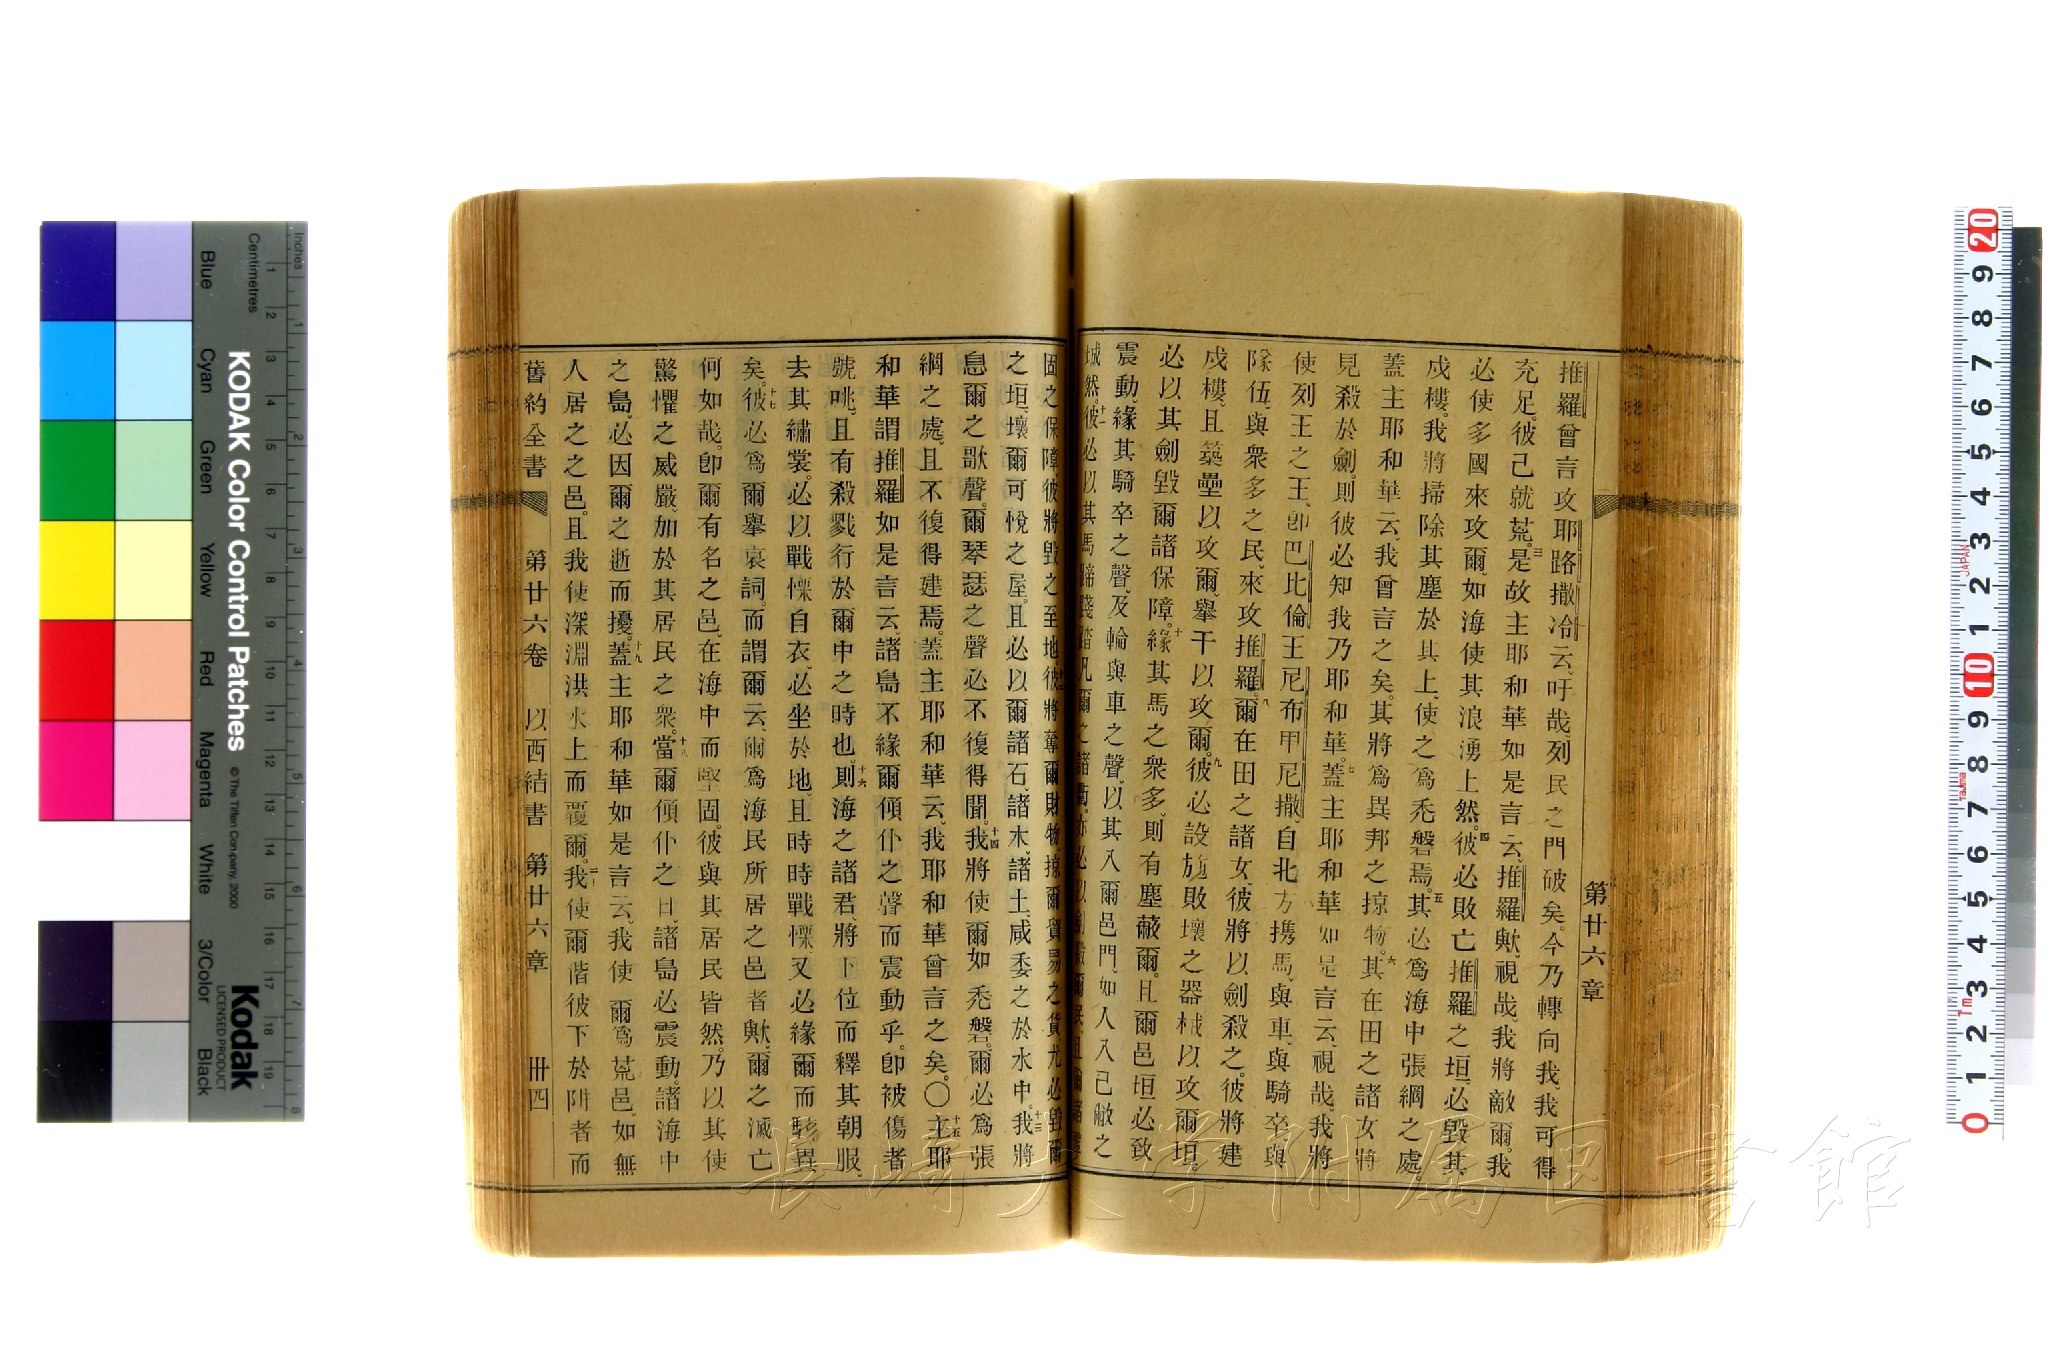 第廿六章
推羅曾言攻耶路撒冷云、吁哉、列民之門破矣。今乃轉向我、我可得
充足、彼己就荒。三是故主耶和華如是言云、推羅歟、視哉、我將敵爾。我
必使多國來攻爾、如海使其浪湧上然。四彼必敗亡推羅之垣、必毀其
戍樓。我將掃除其塵於其上、使之爲禿磐焉。五其必爲海中張綱之處。
蓋主耶和華云、我曾言之矣。其將爲異邦之掠物。六其在田之諸女將
見殺於劍。則彼必知我乃耶和華。七蓋主耶和華如是言云、視哉、我將
使列王之王、卽巴比倫王尼布甲尼撒、自北方携馬、與車、與騎卒與
隊伍、與衆多之民、來攻推羅。八爾在田之諸女、彼將以劍殺之。彼將建
戍樓、且築壘以攻爾、擧干以攻爾。九彼必設施敗壞之器械以攻爾垣。
必以其劍毀爾諸保障。十緣其馬之衆多、則有塵蔽爾。且爾邑垣必致
震動、緣其騎卒之聲、及輪與車之聲、以其入爾邑門、如人入己敵之
城然。十一彼必以其馬蹄踐踏凡爾之諸衢、亦必以劍殺爾民、且爾諸
固之保障、彼將毀之至地。十二彼將奪爾財物、掠爾貿易之貨、尤必毀爾
之垣、壞爾可悅之屋。且必以爾諸石、諸木、諸土、咸委之於水中。十三我將
息爾之歌聲。爾琴瑟之聲必不復得聞。十四我將使爾如禿磐。爾必爲張
綱之處。且不復得建焉。蓋主耶和華云、我耶和華曾言之矣。○十五主耶
和華謂推羅如是言云、諸島不緣爾傾仆之聲而震動乎。卽被傷者
號咷、且有殺戮行於爾中之時也。十六則海之諸君、將下位而釋其朝服、
去其繡裳。必以戰慄自衣、必坐於地、且時時戰慄、又必緣爾而駭異
矣。十七彼必爲爾擧哀詞。而謂爾云、爾爲海民所居之邑者歟、爾之滅亡
何如哉。卽爾有名之邑、在海中而堅固。彼與其居民皆然。乃以其使
驚懼之威嚴、加於其居民之衆。十八當爾傾仆之日、諸島必震動。諸海中
之島、必因爾之逝而擾。十九蓋主耶和華如是言云、我使爾爲荒邑、如無
人居之之邑。且我使深淵洪水上而覆爾。二十我使爾偕彼下於阱者而
舊約全書　第廿六卷　以西結書　第廿六章　卅四
KODAK Color Control Patches
© The Tiffen Company, 2000
Kodak
LICENSED PRODUCT
Inches
Centimetres
Blue Cyan Green Yellow Red Magenta White 3/Color Black
1 2 3 4 5 6 7 8 9 10 11 12 13 14 15 16 17 18 19
1 2 3 4 5 6 7 8
0 1 2 3 4 5 6 7 8 9 10 1 2 3 4 5 6 7 8 9 20
JAPAN
Tajima
長崎大学附属図書館